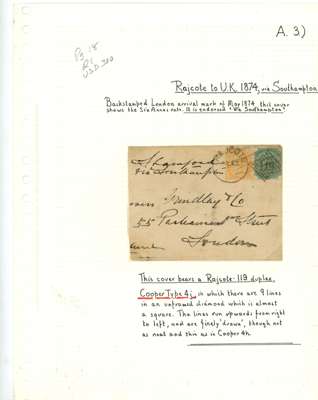 A. 3)
Pg 18
USD 300
Rajcote to U.K. 1874, via Southampton
Backstamped London arrival mark of May 1874, this cover
shows the Six Annas rate. It is endorsed "Via Southampton".
via Southampton
Grindlay & Co
55 Parliament Street
London
This cover bears a Rajcote-119 duplex,
Cooper Type 4i, in which there are 9 lines
in an unframed diamond which is almost
a square. The lines run upwards from right
to left, and are finely 'drawn', though not
as neat and thin as is Cooper 4h.